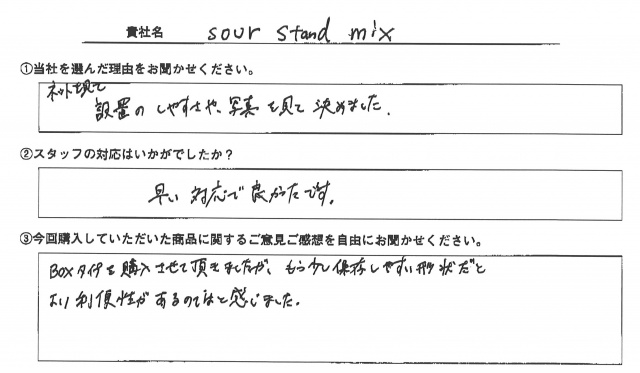 貴社名 sour stand mix
①当社を選んだ理由をお聞かせください。
ネットを見て
設置のしやすさや、写真を見て決めました。
②スタッフの対応はいかがでしたか？
早い対応で良かったです。
③今回購入していただいた商品に関するご意見ご感想を自由にお聞かせください。
BOXタイプを購入させて頂きましたが、もう少し保存しやすい形状だと
より利便性があるのではと感じました。